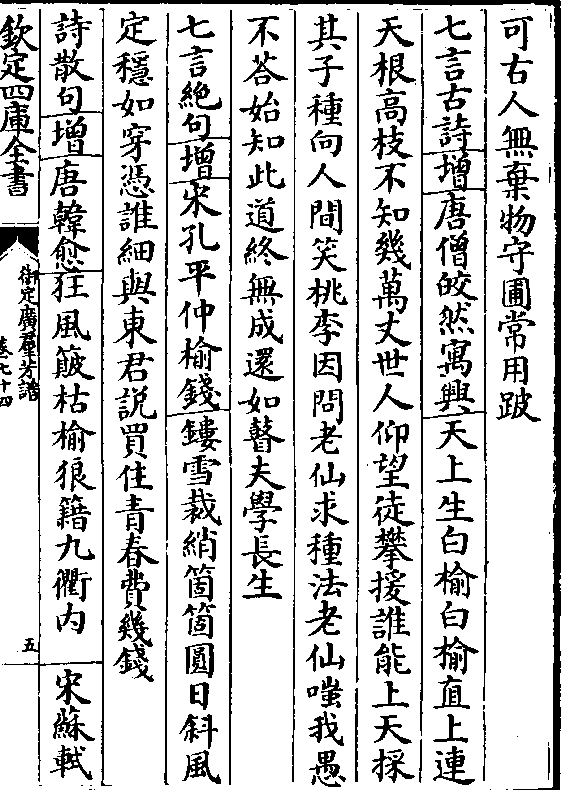 可古人無棄物守圃常用跛
七言古詩增唐僧皎然寓興天上生白榆白榆直上連
天根高枝不知幾萬丈世人仰望徒攀援誰能上天採
其子種向人間笑桃李因問老仙求種法老仙嗤我愚
不答始知此道終無成還如瞽夫學長生
七言絶句增宋孔平仲榆錢鏤雪裁綃箇箇圓日斜風
定穩如穿憑誰細與東君説買住青春費幾錢
詩散句增唐韓愈狂風簸枯榆狼籍九衢内 宋蘇軾
欽定四庫全書
御定廣羣芳譜
卷七十四
五